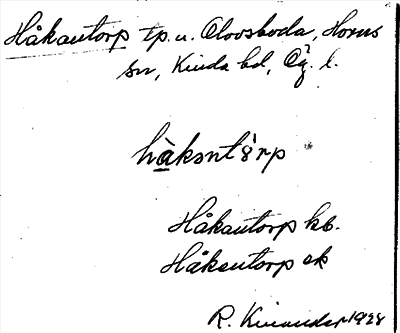 Håkantorp tp. u. Olovsboda, Horns
sn, Kinda hd, Ög. l.
hàkənt8̀rp
Håkantorp kb.
Håkantorp ek
R. Kinander 1928